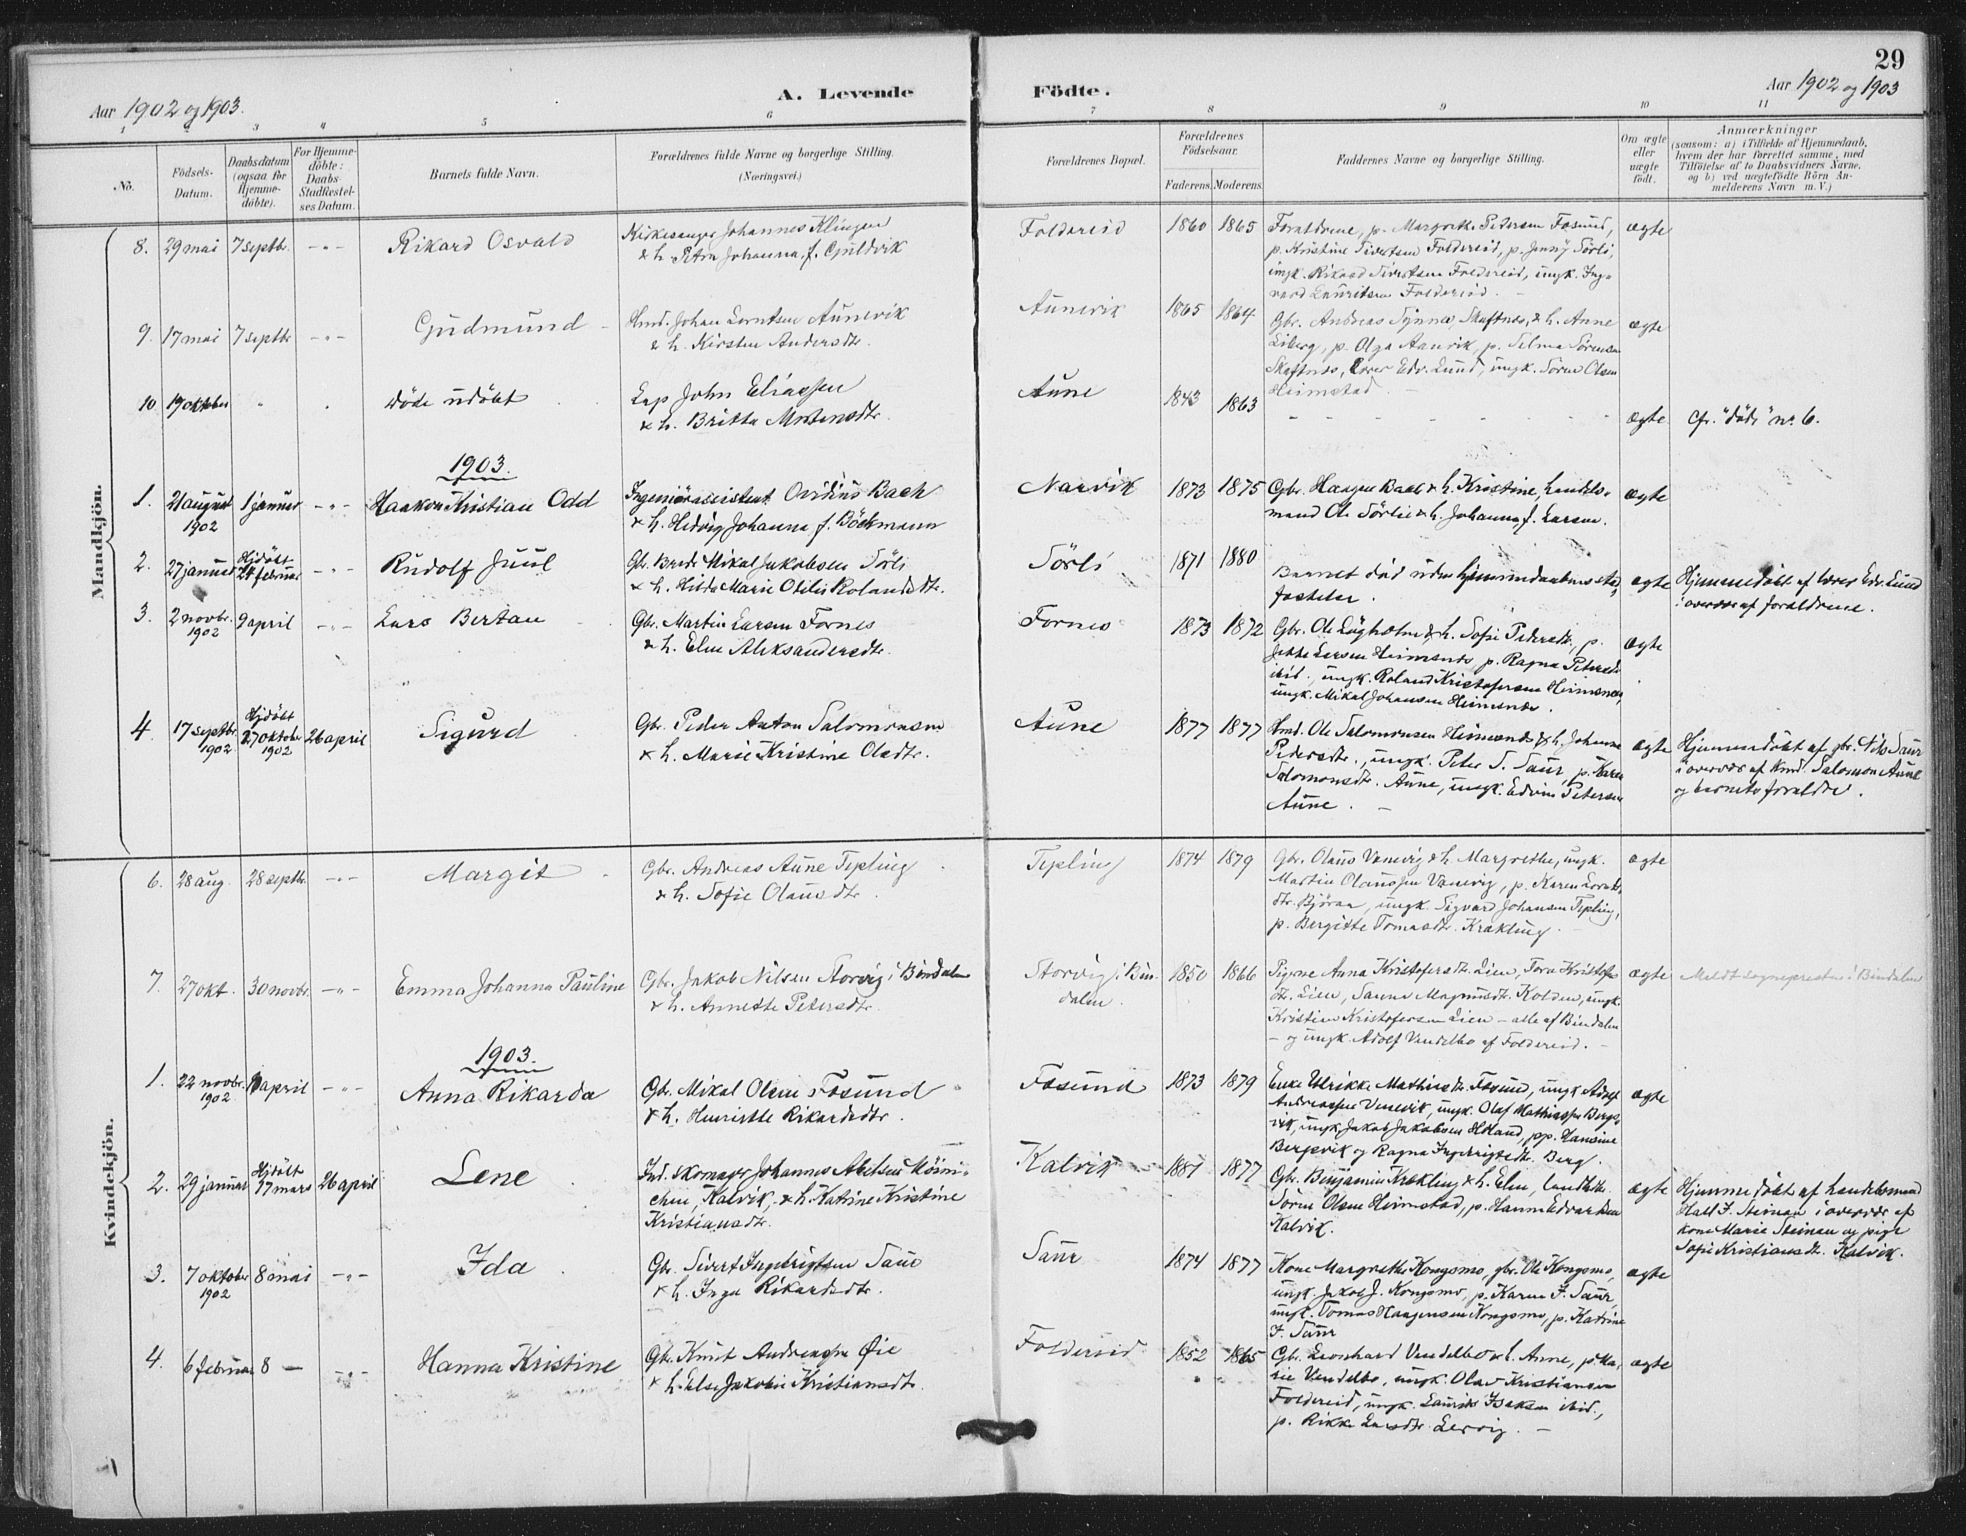 29
Aar 1902 og 1903.
A. Levende
Födte.
Aar 1902 og 1903
1 2 3 4 5 6 7 8 9 10 11
No.
Födsels-
Datum.
Daabsdatum
(ogsaa for
Hjemme-
döbte).
For Hjemme-
döbte:
Daabs-
Stadfæstel-
ses Datum.
Barnets fulde Navn.
Forældrenes fulde Navne og borgerlige Stilling.
(Næringsvei.)
Forældrenes Bopæl.
Forældrenes
Födselsaar.
Faderens. Moderens.
Faddernes Navne og borgerlige Stilling.
Om ægte
eller
uægte
födt.
Anmærkninger
(saasom: a) i Tilfælde af Hjemmedaab,
hvem der har forrettet samme, med
Tilföielse af to Daabsvidners Navne,
og b) ved uægtefödte Börn An-
melderens Navn m. V.)
Mandkjön.
8. 29 mai 7 septbr. -"- Rikard Osvald
Kirkesanger Johannes Klingen
& h. Petra Johanna f. Gjuldvik
Foldereid 1860 1865
Forældrene, p. Margrethe Pedersen Fosund,
p. Kristine Sivertsen Foldereid, p. Jenny Sörli,
ungk. Rikard Sivertsen Foldereid, ungk. Ing-
vard Lauritsen Foldereid. -
ægte
9. 17 mai 7 septbr -"- Gudmund -
Hmd. Johan Lorntsen Aunevik
& h. Kirsten Andersdtr.
Aunevik 1865 1864
Gbr. Andreas Skaftnes, & h. Anne
p. Olga Aanvik, p. Selma Sörensen
Skaftnes, lærer Edv. Lund, ungk. Sören Olsen
Heimstad. -
ægte
10. 19 oktober " . döde udöbt
Lap John Eliassen
& h. Britta Mortensdtr.
Aune 1843 1863 - - - - - ægte cfr. "döde" no 6.
1903.
1. 21 august
1902
1 januar -"- Haakon Kristian Odd
Ingeniörassistent Ovidius Bach
& h. Hedvig Johanna f. Böckmann
Narvik 1873 1875
Gbr. Haagen Bach & h. Kristine, handels-
mand Ole Sörlie & h. Johanna f. Larsen.
ægte
2. 27 januar Hjdöbt
24 februar -"- Rudolf Juul
Gbr. Brede Mikal Jakobsen Sörli
& h. Hilda Marie Otelie Rolandsdtr.
Sörli 1871 1880
Barnet död uden hjemmedaabens stad-
fæstelse.
ægte
Hjemmedöbt af lærer Edv. Lund
i overvær af forældrene.
3. 2 novbr.
1902
9 april -"- Lars Bertau -
Gbr. Martin Larsen Fornes
& h. Elen Aleksandersdtr.
Fornes 1873 1872
Gbr. Ole Lögholm & h. Sofie Pedersdtr., p.
Larsen Heimsnes, p. Ragna Petersdtr
ibid., ungk. Roland Kristofersen Heimsnes,
ungk. Mikal Johansen Heimsnes.
ægte
4. 17 septbr.
1902
Hjdöbt
27 oktober
1902
26 april Sigurd
Gbr. Peder Anton Salomonsen
& h. Marie Kristine Olsdtr.
Aune 1877 1877
Hmd. Ole Salomonsen Heimsnes & h. Johanne
Pedersdtr., ungk. Peter S. Saur, p. Karen
Salomonsdtr. Aune, ungk. Edvin Petersen
Aune. -
ægte
Hjemmedöbt af gbr. Nils Saur
i overvær af kmd. Salomon Aune
og barnets forældre.
Kvindekjön.
6. 28 aug. 28 septbr. -"- Margit -
Gbr. Andreas Aune Tepling
& h. Sofie Olausdtr.
Tepling 1874 1879
Gbr. Olaus Vanevig & h. Margrethe, ungk.
Martin Olaussen Vanevig, p. Karen Lornts
dtr. Björaa, ungk. Sigvard Johansen Tepling,
p. Bergitte Tomasdtr. Krækling. -
ægte
7. 27 okt. 30 novbr. -"- Emma Johanna Pauline
Gbr. Jakob Nilsen Storvig i Bindalen
& h. Annette Petersdtr.
Storvig i Bin-
dalen.
1850 1866
Pigerne Anna Kristofersdtr. Lien, Tora Kristofers
dtr. Lien, Sanna Magnusdtr. Kolden, ungk.
Kristian Kristofersen Lien - alle af Bindalen
- og ungk. Adolf Vendelbo af Foldereid. -
ægte
Meldt sognepresten i Bindalen
1903.
1. 22 novbr.
1902
april -"- Anna Rikarda
Gbr. Mikal Olsen Fosund
& h. Henriette Rikardsdtr.
Fosund 1873 1879
Enke Ulrikke Mathisdtr. Fosund, ungk. Adolf
Andreassen Venevik, ungk. Olaf Mathiassen Bergs-
vik, ungk. Jakob Jakobsen Höiland, pp. Hansine
Bergsvik og Ragna Ingebrigtsdtr. Berg.
ægte
2. 29 januar Hjdöbt
17 mars 26 april Lene
Ind. skomager Johannes Abelsen
Kalvik, & h. Katrine Kristine
Kristiansdtr.
Kalvik 1881 1877
Gbr. Benjamin Krækling & h. Elen,
Sören Olsen Heimstad, p. Hanna Edvardsen
Kalvik.
ægte
Hjemmedöbt af handelsmand
Hall J. Steinan i overvær af
kone Marie Steinan og pige
Sofie Kristiansdtr. Kalvik.
3. 7 oktober
1902
8 mai -"- Ida
Gbr. Sivert Ingebrigtsen Saur
& h. Inga Rikardsdtr.
Saur 1874 1877
Kone Margrethe Kongsmo, gbr. Ole Kongsmo,
ungk. Jakob J. Kongsmo, p. Karen I. Saur,
ungk. Tomas Haagensen Kongsmo, p. Katrine
I. Saur
ægte
4. 6 februar 8 - -"- Hanna Kristine
Gbr. Knut Andreassen Öie
& h. Else Jakobie Kristiansdtr.
Foldereid 1852 1865
Gbr. Leonhard Vendelbo & h. Anne, p. Ka-
rie Vendelbo, ungk. Olav Kristiansen
Foldereid, ungk. Laurits Isaksen ibid.,
p. Rikke Larsdtr. Lervig. -
ægte